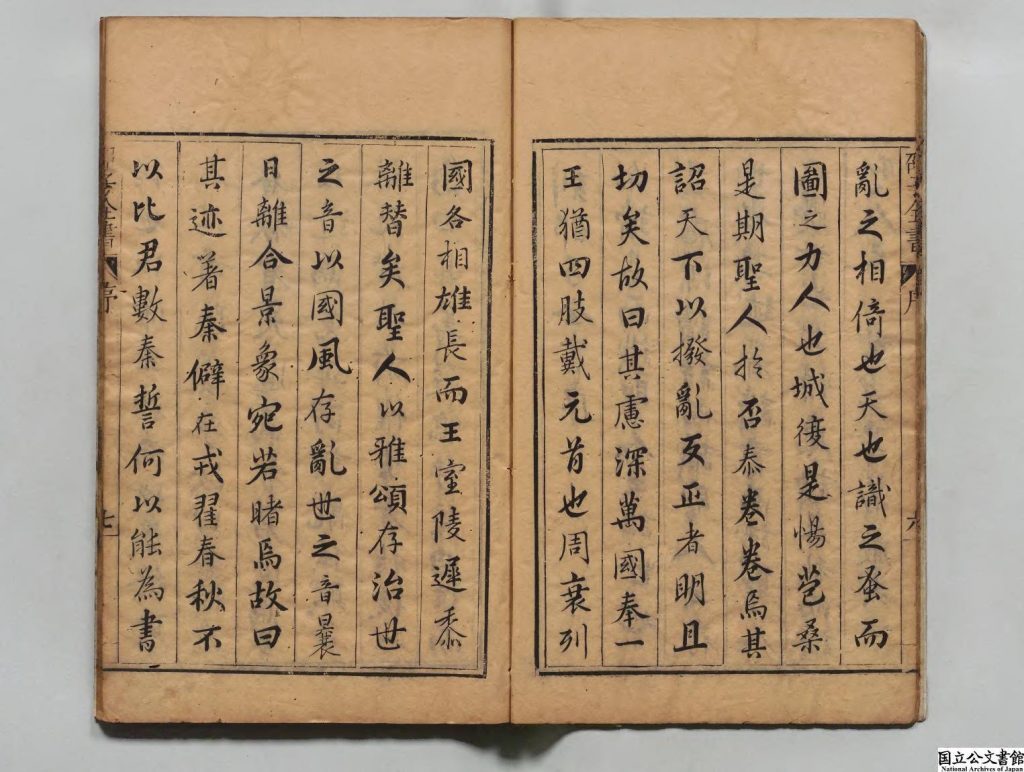 亂之相倚也天也識之蚤而
圖之力人也城復是惕苞桑
是期聖人於否泰卷卷焉其
詔天下以撥亂反正者明且
切矣故曰其慮深萬國奉一
王猶四肢戴元首也周衰列
國各相雄長而王室陵遲黍
離替矣聖人以雅頌存治世
之音以國風存亂世之音曩
日離合景象宛若睹焉故曰
其迹著秦僻在戎翟春秋不
以比君數秦誓何以能為書
全書
序
六
全書
序
七
国立公文書館
National Archives of Japan